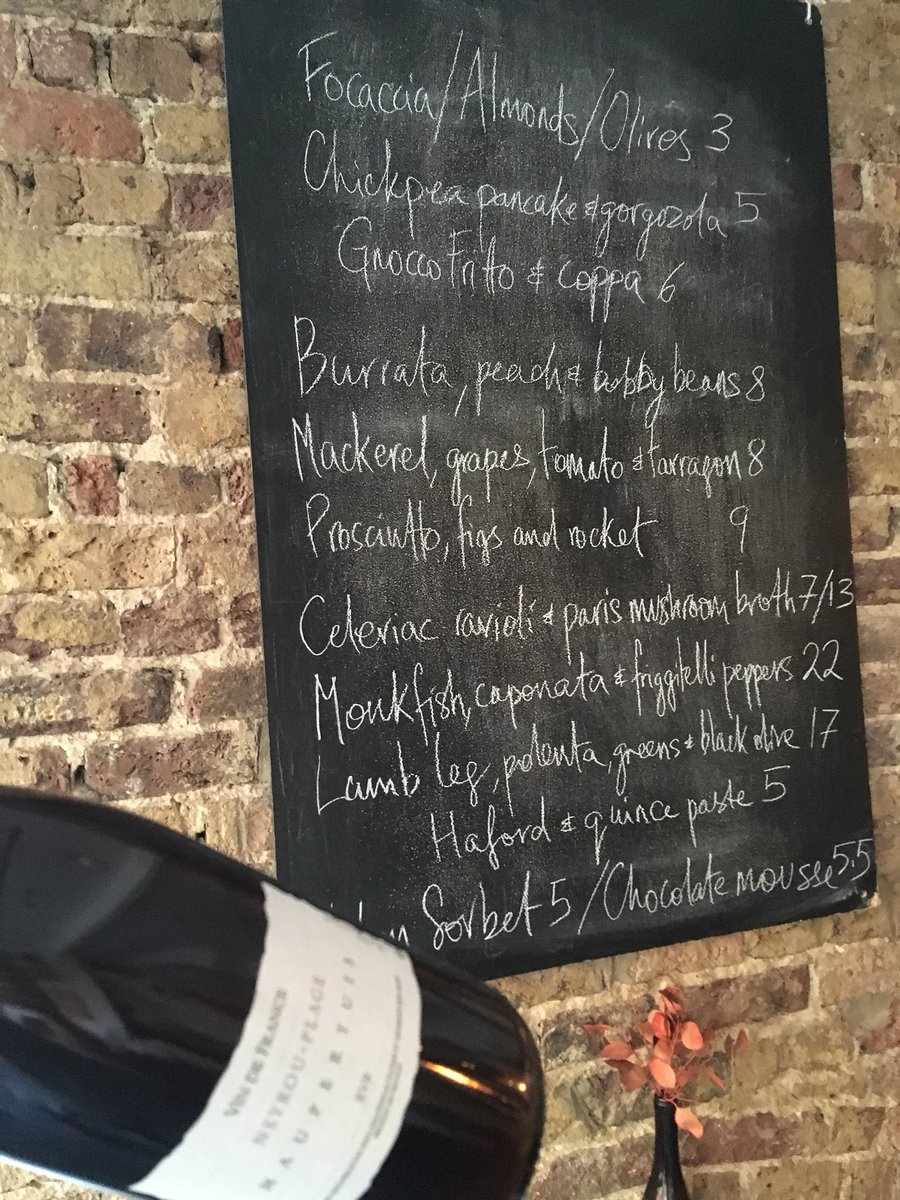 Focaccia/Almonds/Olives 3
Chickpea pancake & gorgozola 5
Gnocco Fritto & coppa 6
Burrata, peach & bobby beans 8
Mackerel, grapes, tomato & tarragon 8
Prosciutto, figs and rocket 9
Celeriac ravioli & paris mushroom broth 7/13
Monkfish, caponata & friggitelli peppers 22
Lamb leg, polenta, greens & black olive 17
Haford & quince paste 5
Sorbet 5 / Chocolate mousse 5.5
VIN DE FRANCE
NEYROU-PLAGE
MAUPERTUIS